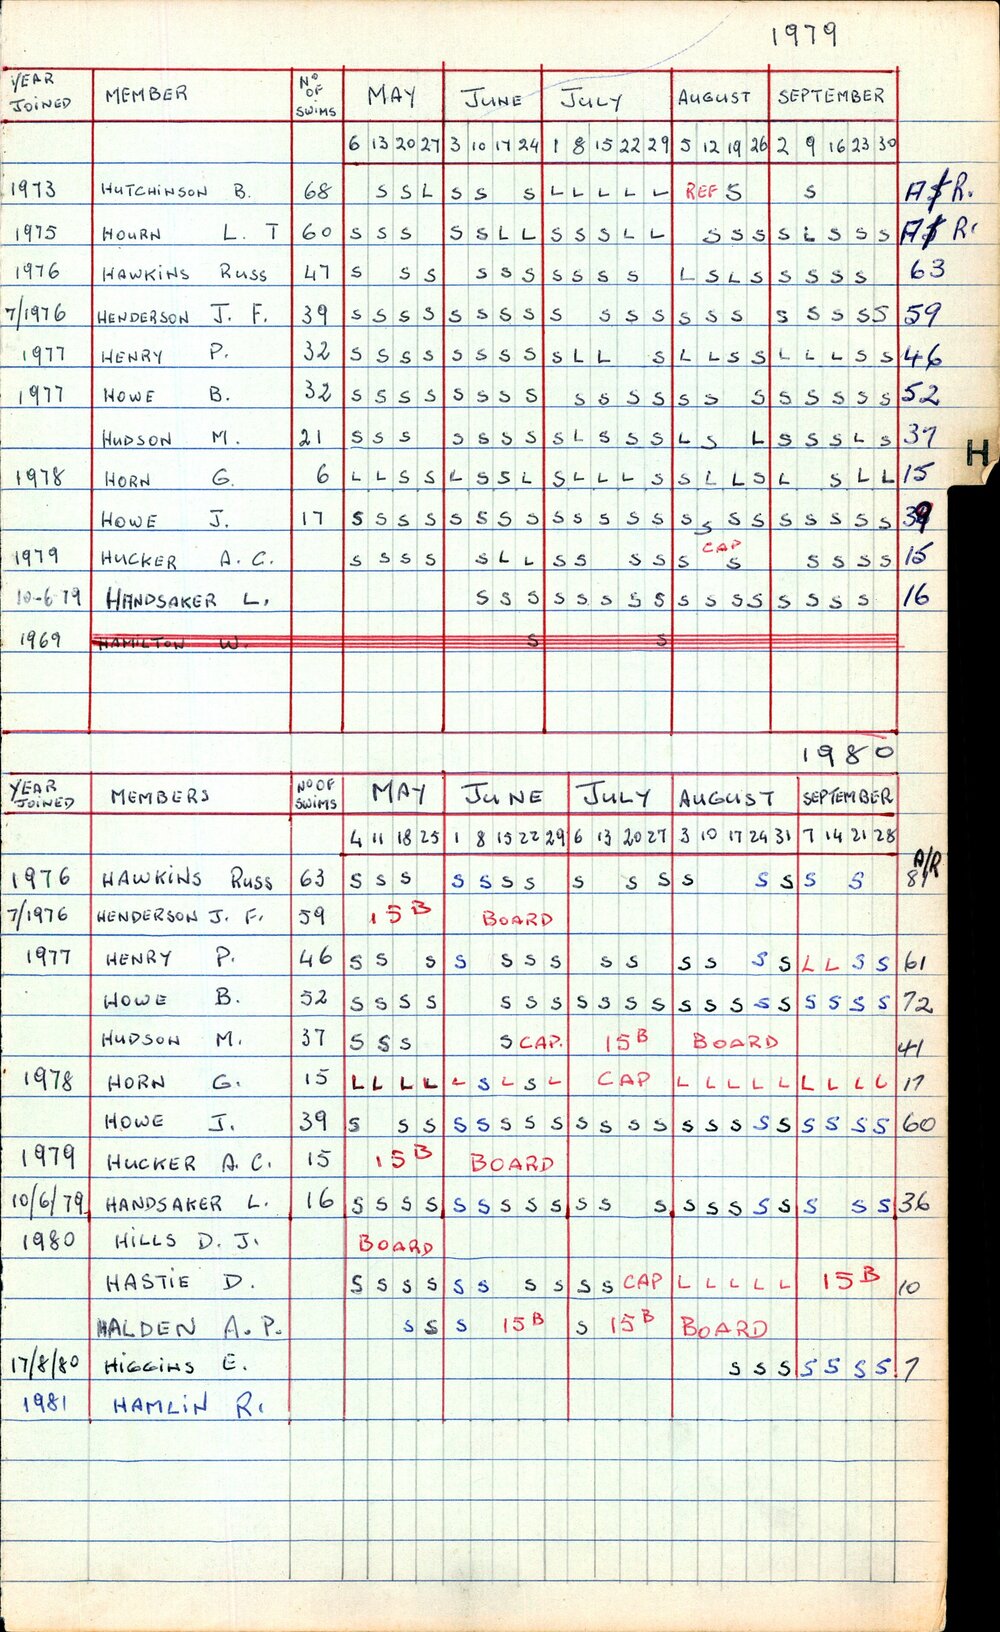 1979
YEAR JOINED MEMBER Nº OF SWIMS MAY JUNE JULY AUGUST SEPTEMBER
6 13 20 27 3 10 17 24 1 8 15 22 29 5 12 19 26 2 9 16 23 30
1973 HUTCHINSON B. 68 S S L S S S L L L L L REF S S R.
1975 HOURN L. T 60 S S S S S L L S S S L L S S S S L S S S R.
1976 HAWKINS RUSS 47 S S S S S S S S S S L S L S S S S S 63
7/1976 HENDERSON J. F. 39 S S S S S S S S S S S S S S S S S S S S 59
1977 HENRY P. 32 S S S S S S S S S L L S L L S S L L L S S 46
1977 HOWE B. 32 S S S S S S S S S S S S S S S S S S S S 52
HUDSON M. 21 S S S S S S S S L S S S L S L S S S L S 37
1978 HORN G. 6 L L S S L S S L S L L L S S L L S L S L L 15
HOWE J. 17 S S S S S S S S S S S S S S S S S S S S S S 39
CAP
1979 HUCKER A. C. S S S S S L L S S S S S S S S S S 15
10-6-79 HANDSAKER L. S S S S S S S S S S S S S S S S 16
1969 HAMILTON W. S S
1980
YEAR JOINED MEMBERS Nº OF SWIMS MAY JUNE JULY AUGUST SEPTEMBER
4 11 18 25 1 8 15 22 29 6 13 20 27 3 10 17 24 31 7 14 21 28
A/R
1976 HAWKINS RUSS 63 S S S S S S S S S S S S S S S 81
7/1976 HENDERSON J. F. 59 15 B BOARD
1977 HENRY P. 46 S S S S S S S S S S S S S L L S S 61
HOWE B. 52 S S S S S S S S S S S S S S S S S S S S 72
HUDSON M. 37 S S S S CAP. 15 B BOARD 41
1978 HORN G. 15 L L L L L S L S L CAP L L L L L L L L L 17
HOWE J. 39 S S S S S S S S S S S S S S S S S S S S S 60
1979 HUCKER A. C. 15 15 B BOARD
10/6/79 HANDSAKER L. 16 S S S S S S S S S S S S S S S S S S S S 36
1980 HILLS D. J. BOARD
HASTIE D. S S S S S S S S S S CAP L L L L L 15 B 10
HALDEN A. P. S S S 15 B S 15 B BOARD
17/8/80 HIGGINS E. S S S S S S S 7
1981 HAMLIN R.
H